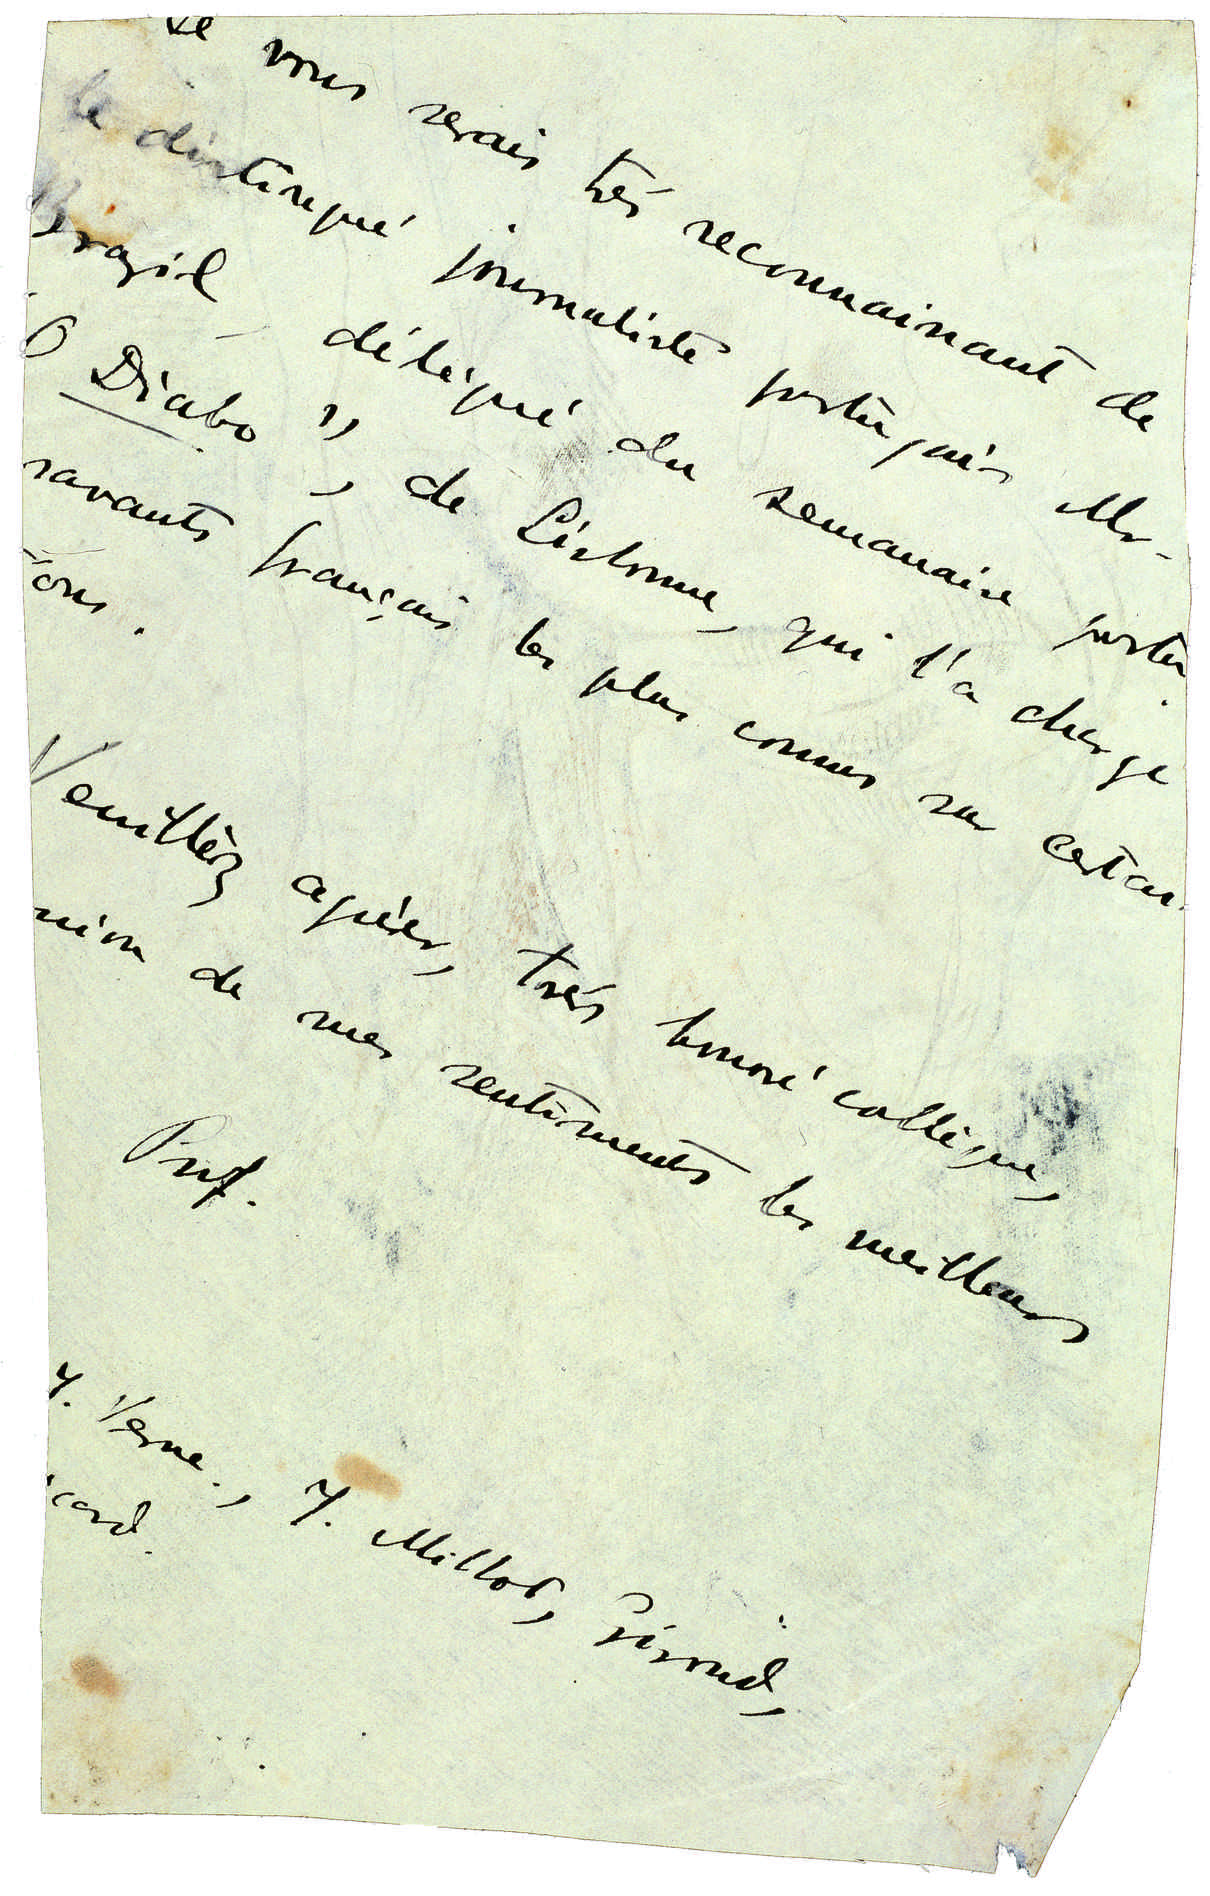 Je vous serais très reconnaissant de
le distingué journaliste portugais Mr.
Brazil, délégué du semanaire portu
"O Diabo", de Lisbonne, qui l'a chargé
savants français les plus connus sur certai
ions.
Veuillez agréer, très honoré collègue,
sion de mes sentiments les meilleurs
Prof.
J. Verne., J. Millot, Giroud,
icard.